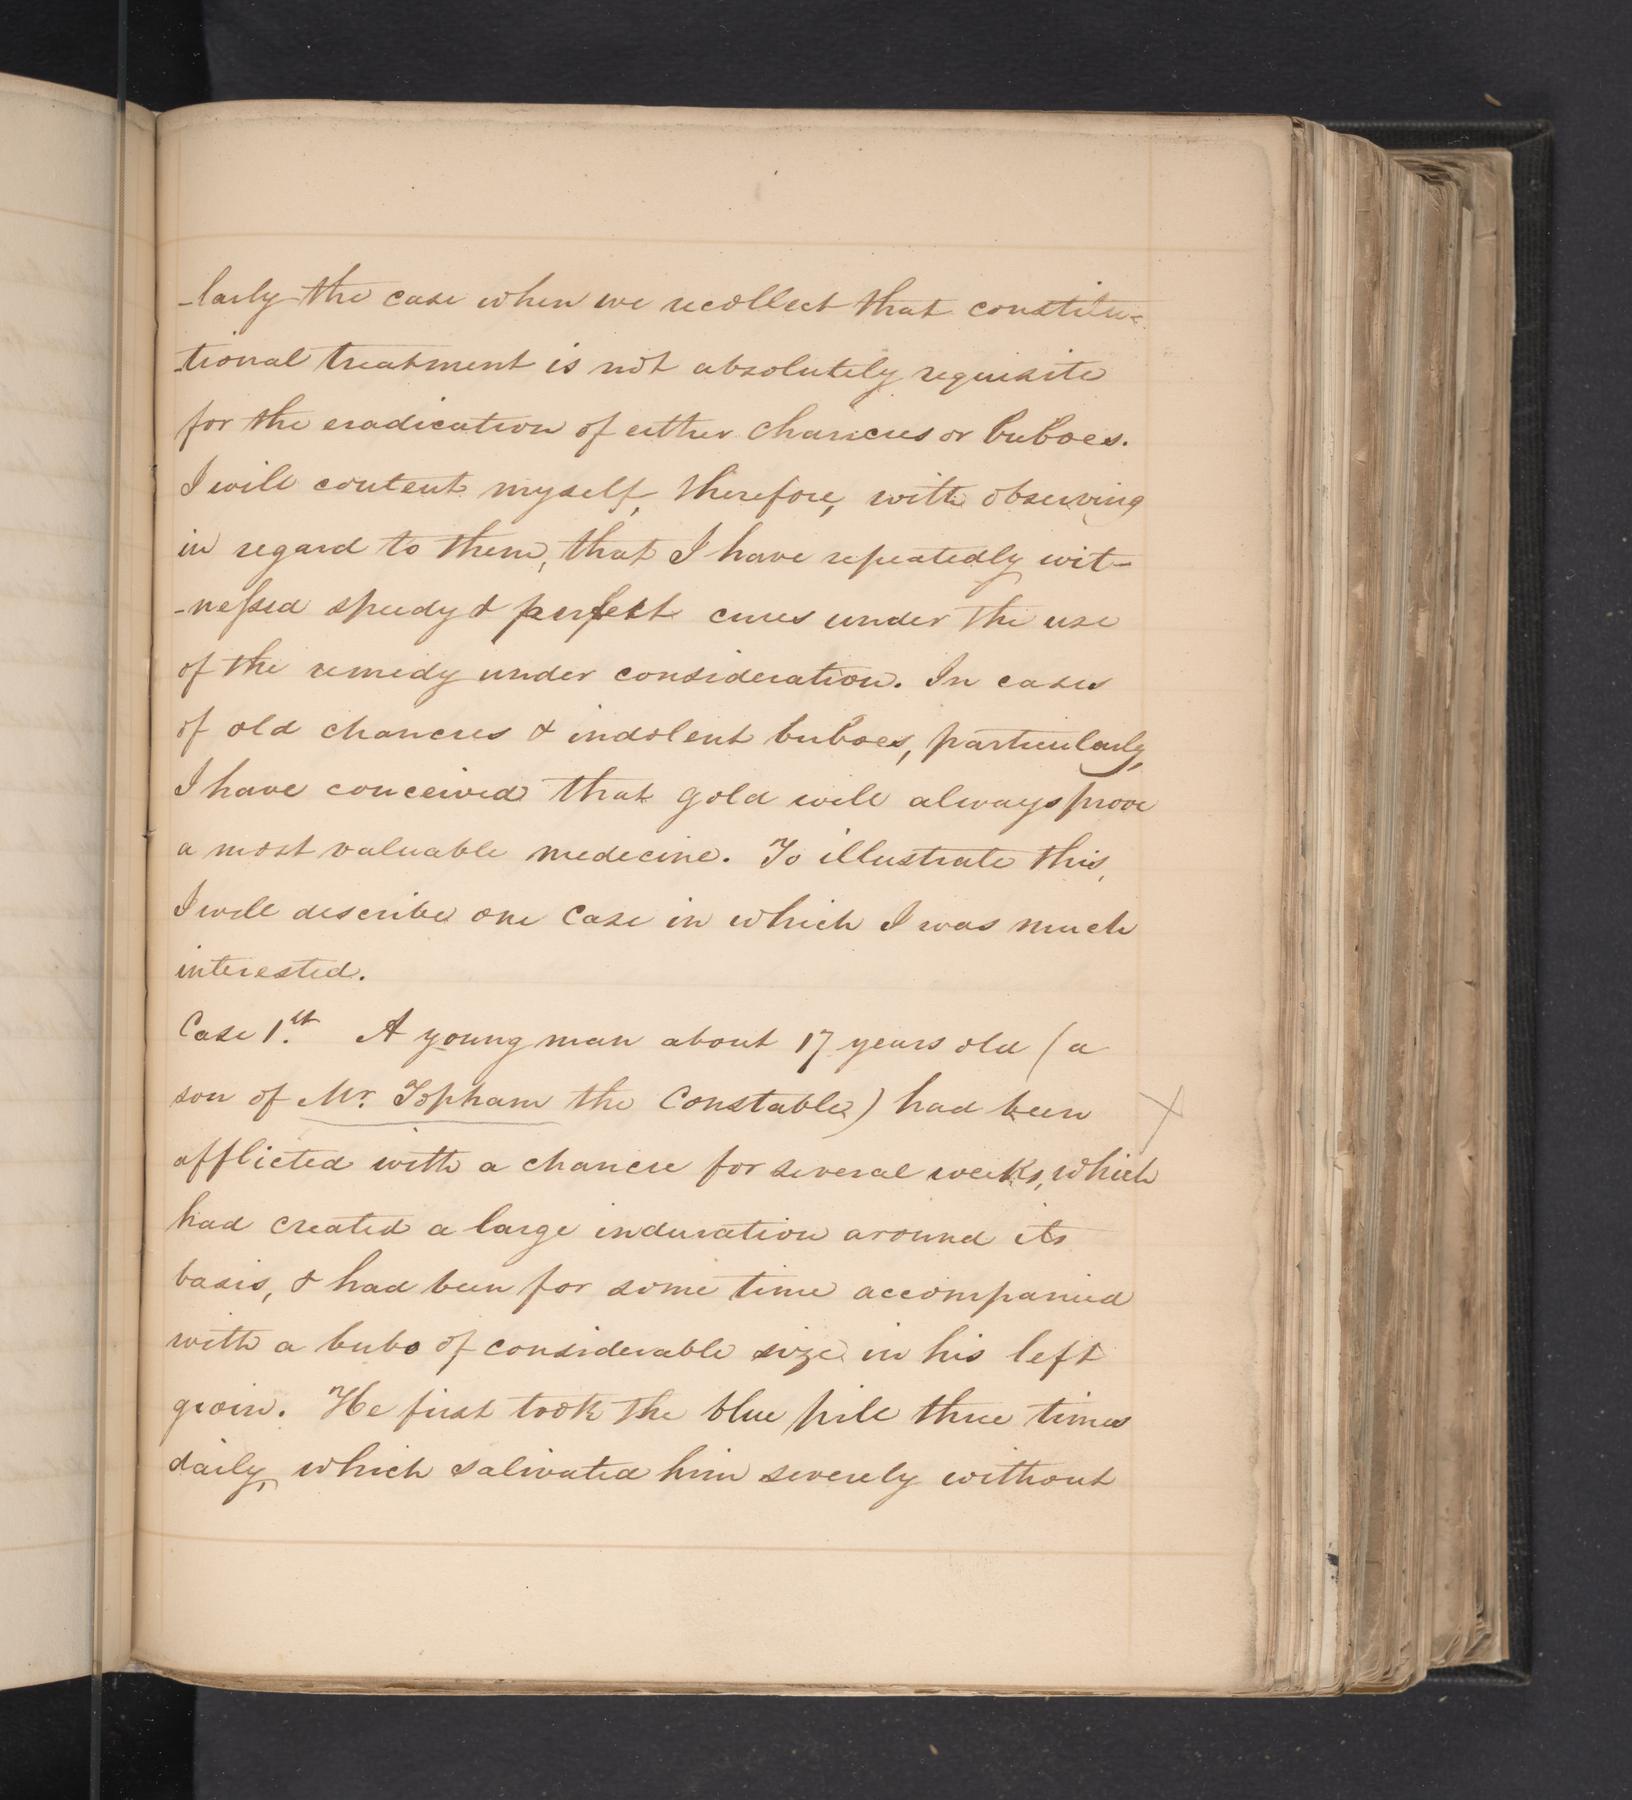 -larly the case when we recollect that constitu=
-tional treatment is not absolutely requisite
for the eradication of either chancres or buboes.
I will content myself, therefore, with observing
in regard to them, that I have repeatedly wit-
-nessed speedy & perfect cures under the use
of the remedy under consideration. In cases
of old chancres & indolent buboes, particularly,
I have conceived that gold will always prove
a most valuable medecine. To illustrate this,
I will describe one case in which I was much
interested.
Case 1.st A young man about 17 years old (a
son of Mr. Topham the Constable) had been
afflicted with a chancre for several weeks, which
had created a large induration around its
basis, & had been for some time accompanied
with a bubo of considerable size in his left
groin. He first took the blue pill three times
daily, which salivated him severely without